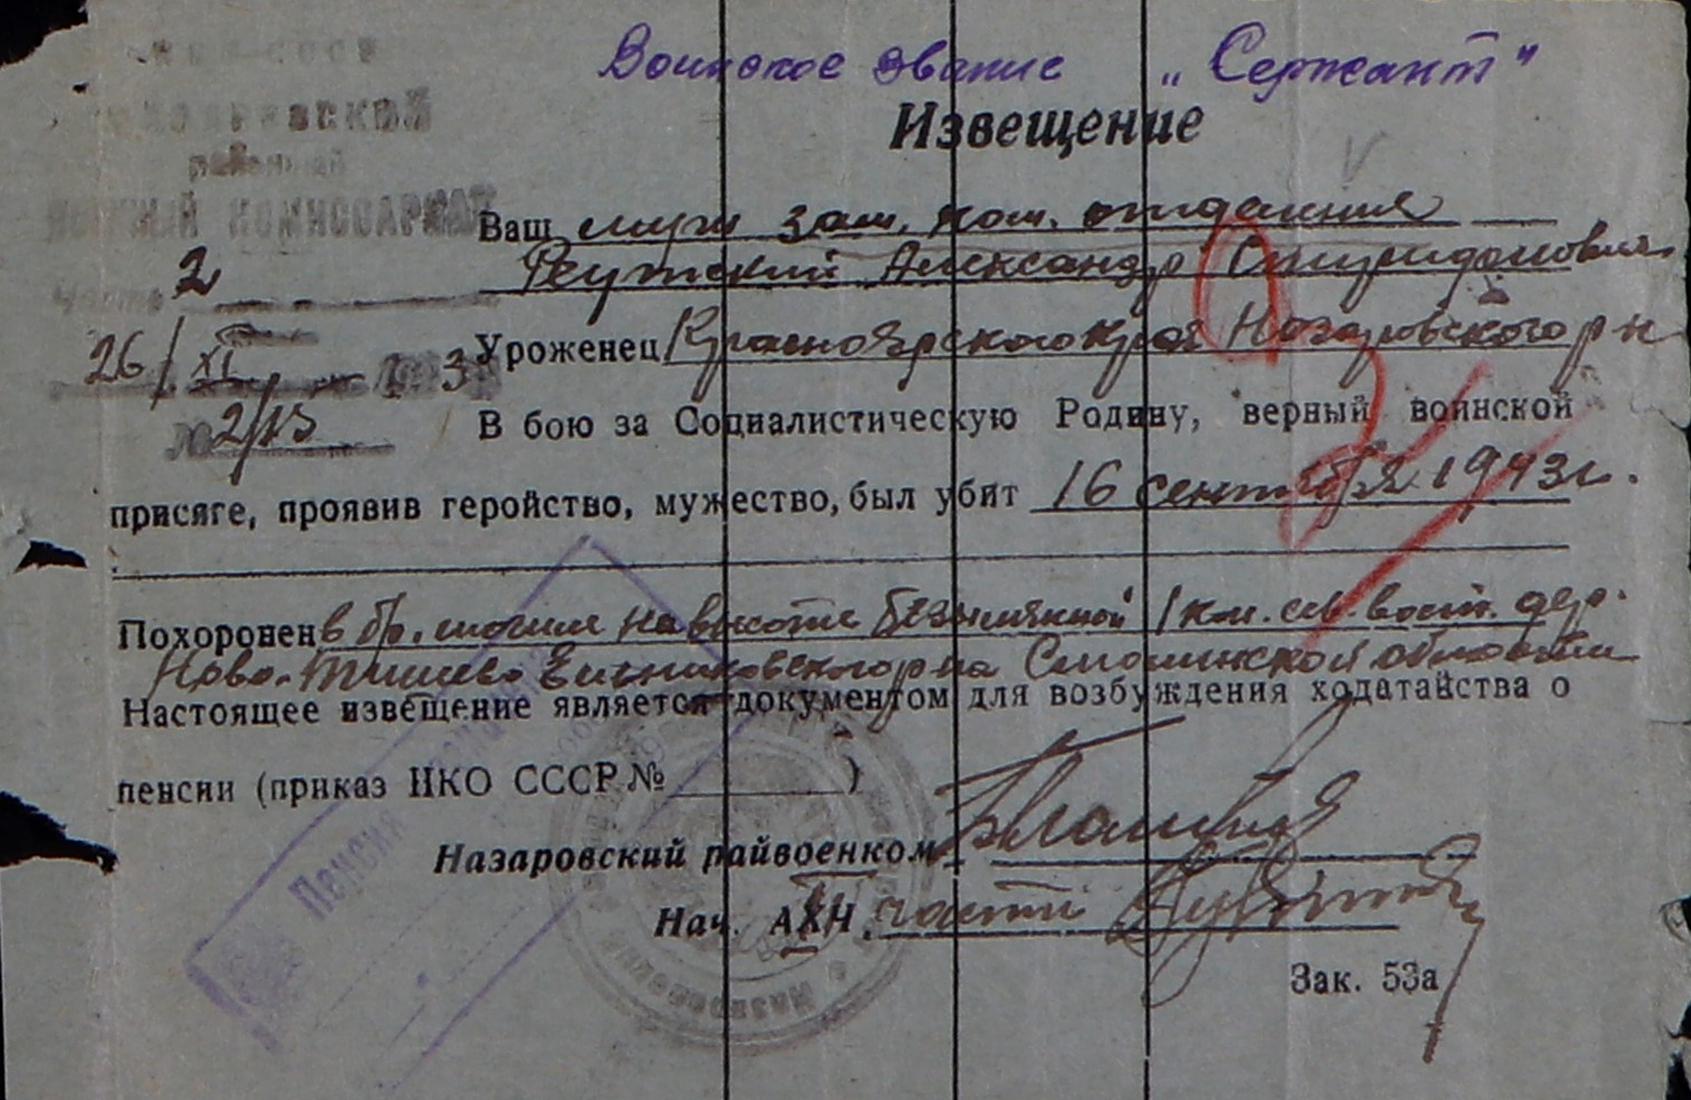 Воинское звание „Сержант"
Извещение
районный
ВОЕННЫЙ КОМИССАРИАТ
Ваш муж зам. ком. отделения
Часть 2
Реутский Александр Спиридонович
26/XI 3
Уроженец Красноярского края Назаровского р-н
№ 2/15
В бою за Социалистическую Родину, верный воинской
присяге, проявив геройство, мужество, был убит 16 сентября 1943 г.
Похоронен в бр. могиле на высоте Безымянной 1 км. сев. вост. дер.
Ново-Тишево Екимовского р-на Смоленской области
Настоящее извещение является документом для возбуждения ходатайства о
пенсии (приказ НКО СССР № )
Пенсия
Назаровский райвоенком
Нач. АХН части
Зак. 53а